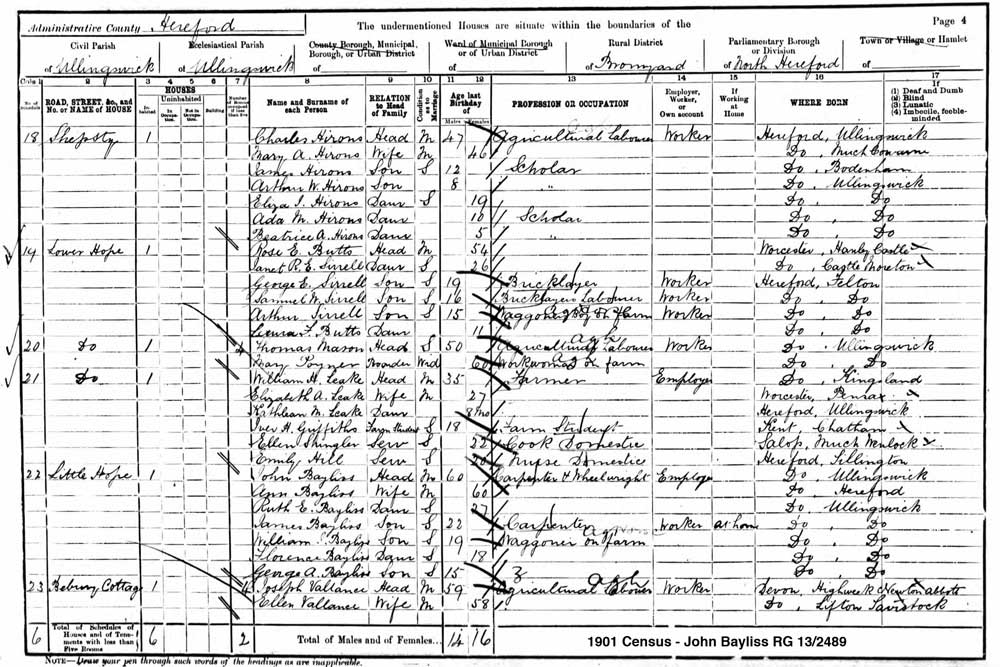 Administrative County Hereford The undermentioned Houses are situate within the boundaries of the Page 4
Civil Parish Ecclesiastical Parish County Borough, Municipal Borough, or Urban District Ward of Municipal Borough or of Urban District Rural District Parliamentary Borough or Division Town or Village or Hamlet
of Ullingswick of Ullingswick of of of Bromyard of North Hereford of
Cols. 1 2 3 4 5 6 7 8 9 10 11 12 13 14 15 16 17
No. of Schedule ROAD, STREET, &c., and No. or NAME of HOUSE HOUSES Inhabited Uninhabited In Occupation Not in Occupation Building Number of Rooms occupied if less than five Name and Surname of each Person RELATION to Head of Family Condition as to Marriage Age last Birthday of Males Females PROFESSION OR OCCUPATION Employer, Worker, or Own account If Working at Home WHERE BORN If (1) Deaf and Dumb (2) Blind (3) Lunatic (4) Imbecile, feeble-minded
18 Shepsty 1 Charles Hirons Head M 47 Agricultural Labourer Worker Hereford, Ullingswick
Mary A. Hirons Wife M 46 Do, Much Cowarne
James Hirons Son S 12 Scholar Do, Bodenham
Arthur W. Hirons Son 8 " Do, Ullingswick
Eliza I. Hirons Daur S 19 Do, Do
Ada M. Hirons Daur 10 Scholar Do, Do
Beatrice A. Hirons Daur 5 " Do, Do
19 Lower Hope 1 Rose E. Butts Head M 54 Worcester, Hanley Castle
Janet R. E. Sirrell Daur S 26 Do, Castle Moreton
George E. Sirrell Son S 19 Bricklayer Worker Hereford, Felton
Samuel W. Sirrell Son S 16 Bricklayers Labourer Worker Do, Do
Arthur Sirrell Son S 15 Waggoners Boy on farm Worker Do, Do
Laura F. Butts Daur 11 Do, Do
20 Do 1 4 Thomas Mason Head S 50 Agricultural Labourer Worker Do, Ullingswick
Mary Poyner Boarder Wid 60 Workwoman on farm Do, Do
21 Do 1 William H. Leake Head M 35 Farmer Employer Do, Kingsland
Elizabeth A. Leake Wife M 27 Worcester, Pensax
Kathleen M. Leake Daur 8 mo Hereford, Ullingswick
Iver H. Griffiths Farm Student S 18 Farm Student Kent, Chatham
Ellen Shingler Serv S 22 Cook Domestic Salop, Much Wenlock
Emily Hill Serv S 20 Nurse Domestic Hereford, Tillington
22 Little Hope 1 John Bayliss Head M 60 Carpenter & Wheelwright Employer Do, Ullingswick
Ann Bayliss Wife M 60 Do, Hereford
Ruth E. Bayliss Daur S 27 Do, Ullingswick
James Bayliss Son S 22 Carpenter Worker at home Do, Do
William Bayliss Son S 19 Waggoner on farm Do, Do
Florence Bayliss Daur S 18 Do, Do
George A. Bayliss Son S 15 Do, Do
23 Bebury Cottage 1 4 Joseph Vallance Head M 59 Agricultural Labourer Worker Devon, Highweek Newton abbots
Ellen Vallance Wife M 58 Do, Lifton Tavistock
6 Total of Schedules of Houses and of Tenements with less than Five Rooms 6 2 Total of Males and of Females... 14 16 1901 Census - John Bayliss RG 13/2489
NOTE—Draw your pen through such words of the headings as are inapplicable.